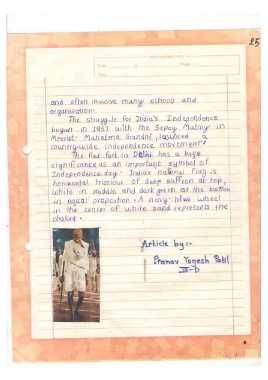 25
Date
Page
and often involve many schools and
organisation.
The struggle for India's Independence
began in 1857 with the Sepoy Mutiny in
Meerut. Mahatma Gandhi, launced a
countrywide independence movement.
The Red Fort in Delhi has a huge
significance as an important symbol of
Independence day. India's national flag is
horizontal tricolour of deep saffron at top,
white in middle and dark green at the bottom
in equal proportion. A navy-blue wheel
in the center of white band represents the
chakra.
Article by:-
Pranav Yogesh Patil
III-D